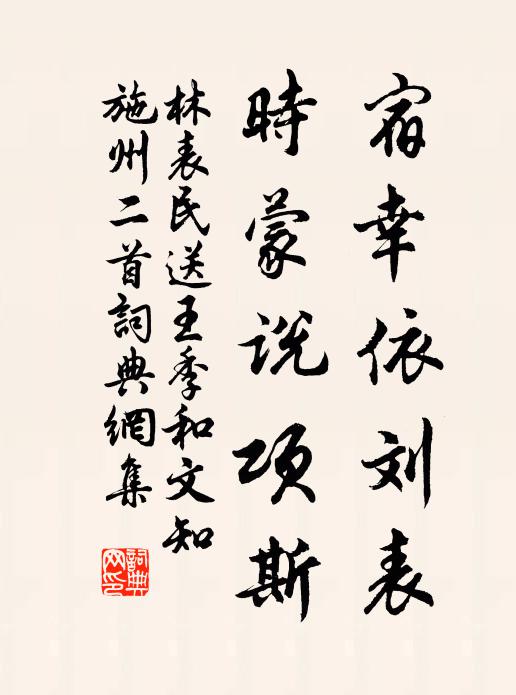 宿幸依刘表
時蒙説项斯
林表民送王季和文知
施州二首詞典網集
詞典网印